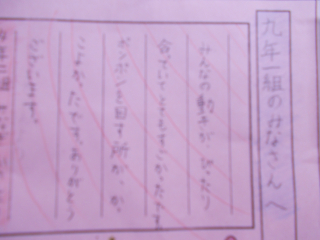 九年一組のみなさんへ
みんなの動きが、ぴったり
合っていてとてもすごかったです。
ポンポンを回す所が、か、
こよかったです。ありがとう
ございます。